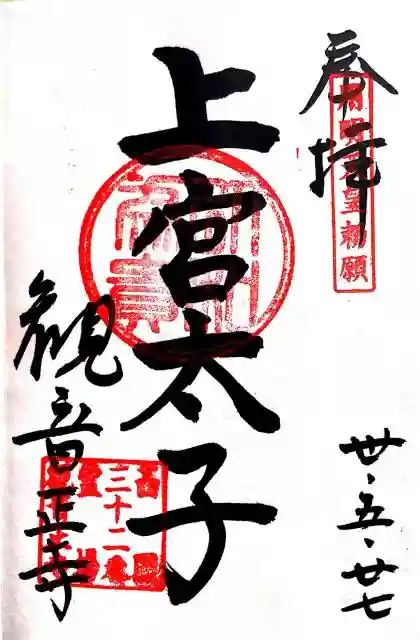 奉拝
上宮太子
観音正寺
卅、五、廿七
三十二番
勅願